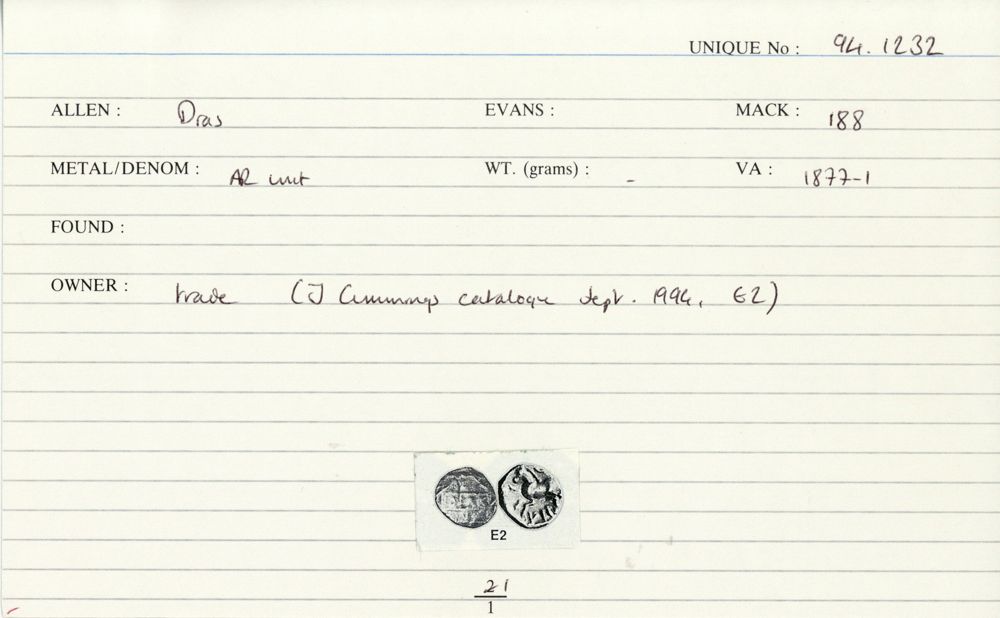 UNIQUE No : 94.1232
ALLEN : Dras EVANS : MACK : 188
METAL/DENOM : AR unit WT. (grams) : - VA : 1877-1
FOUND :
OWNER : trade (J Cummings catalogue Sept. 1994, E2)
E2
21
1